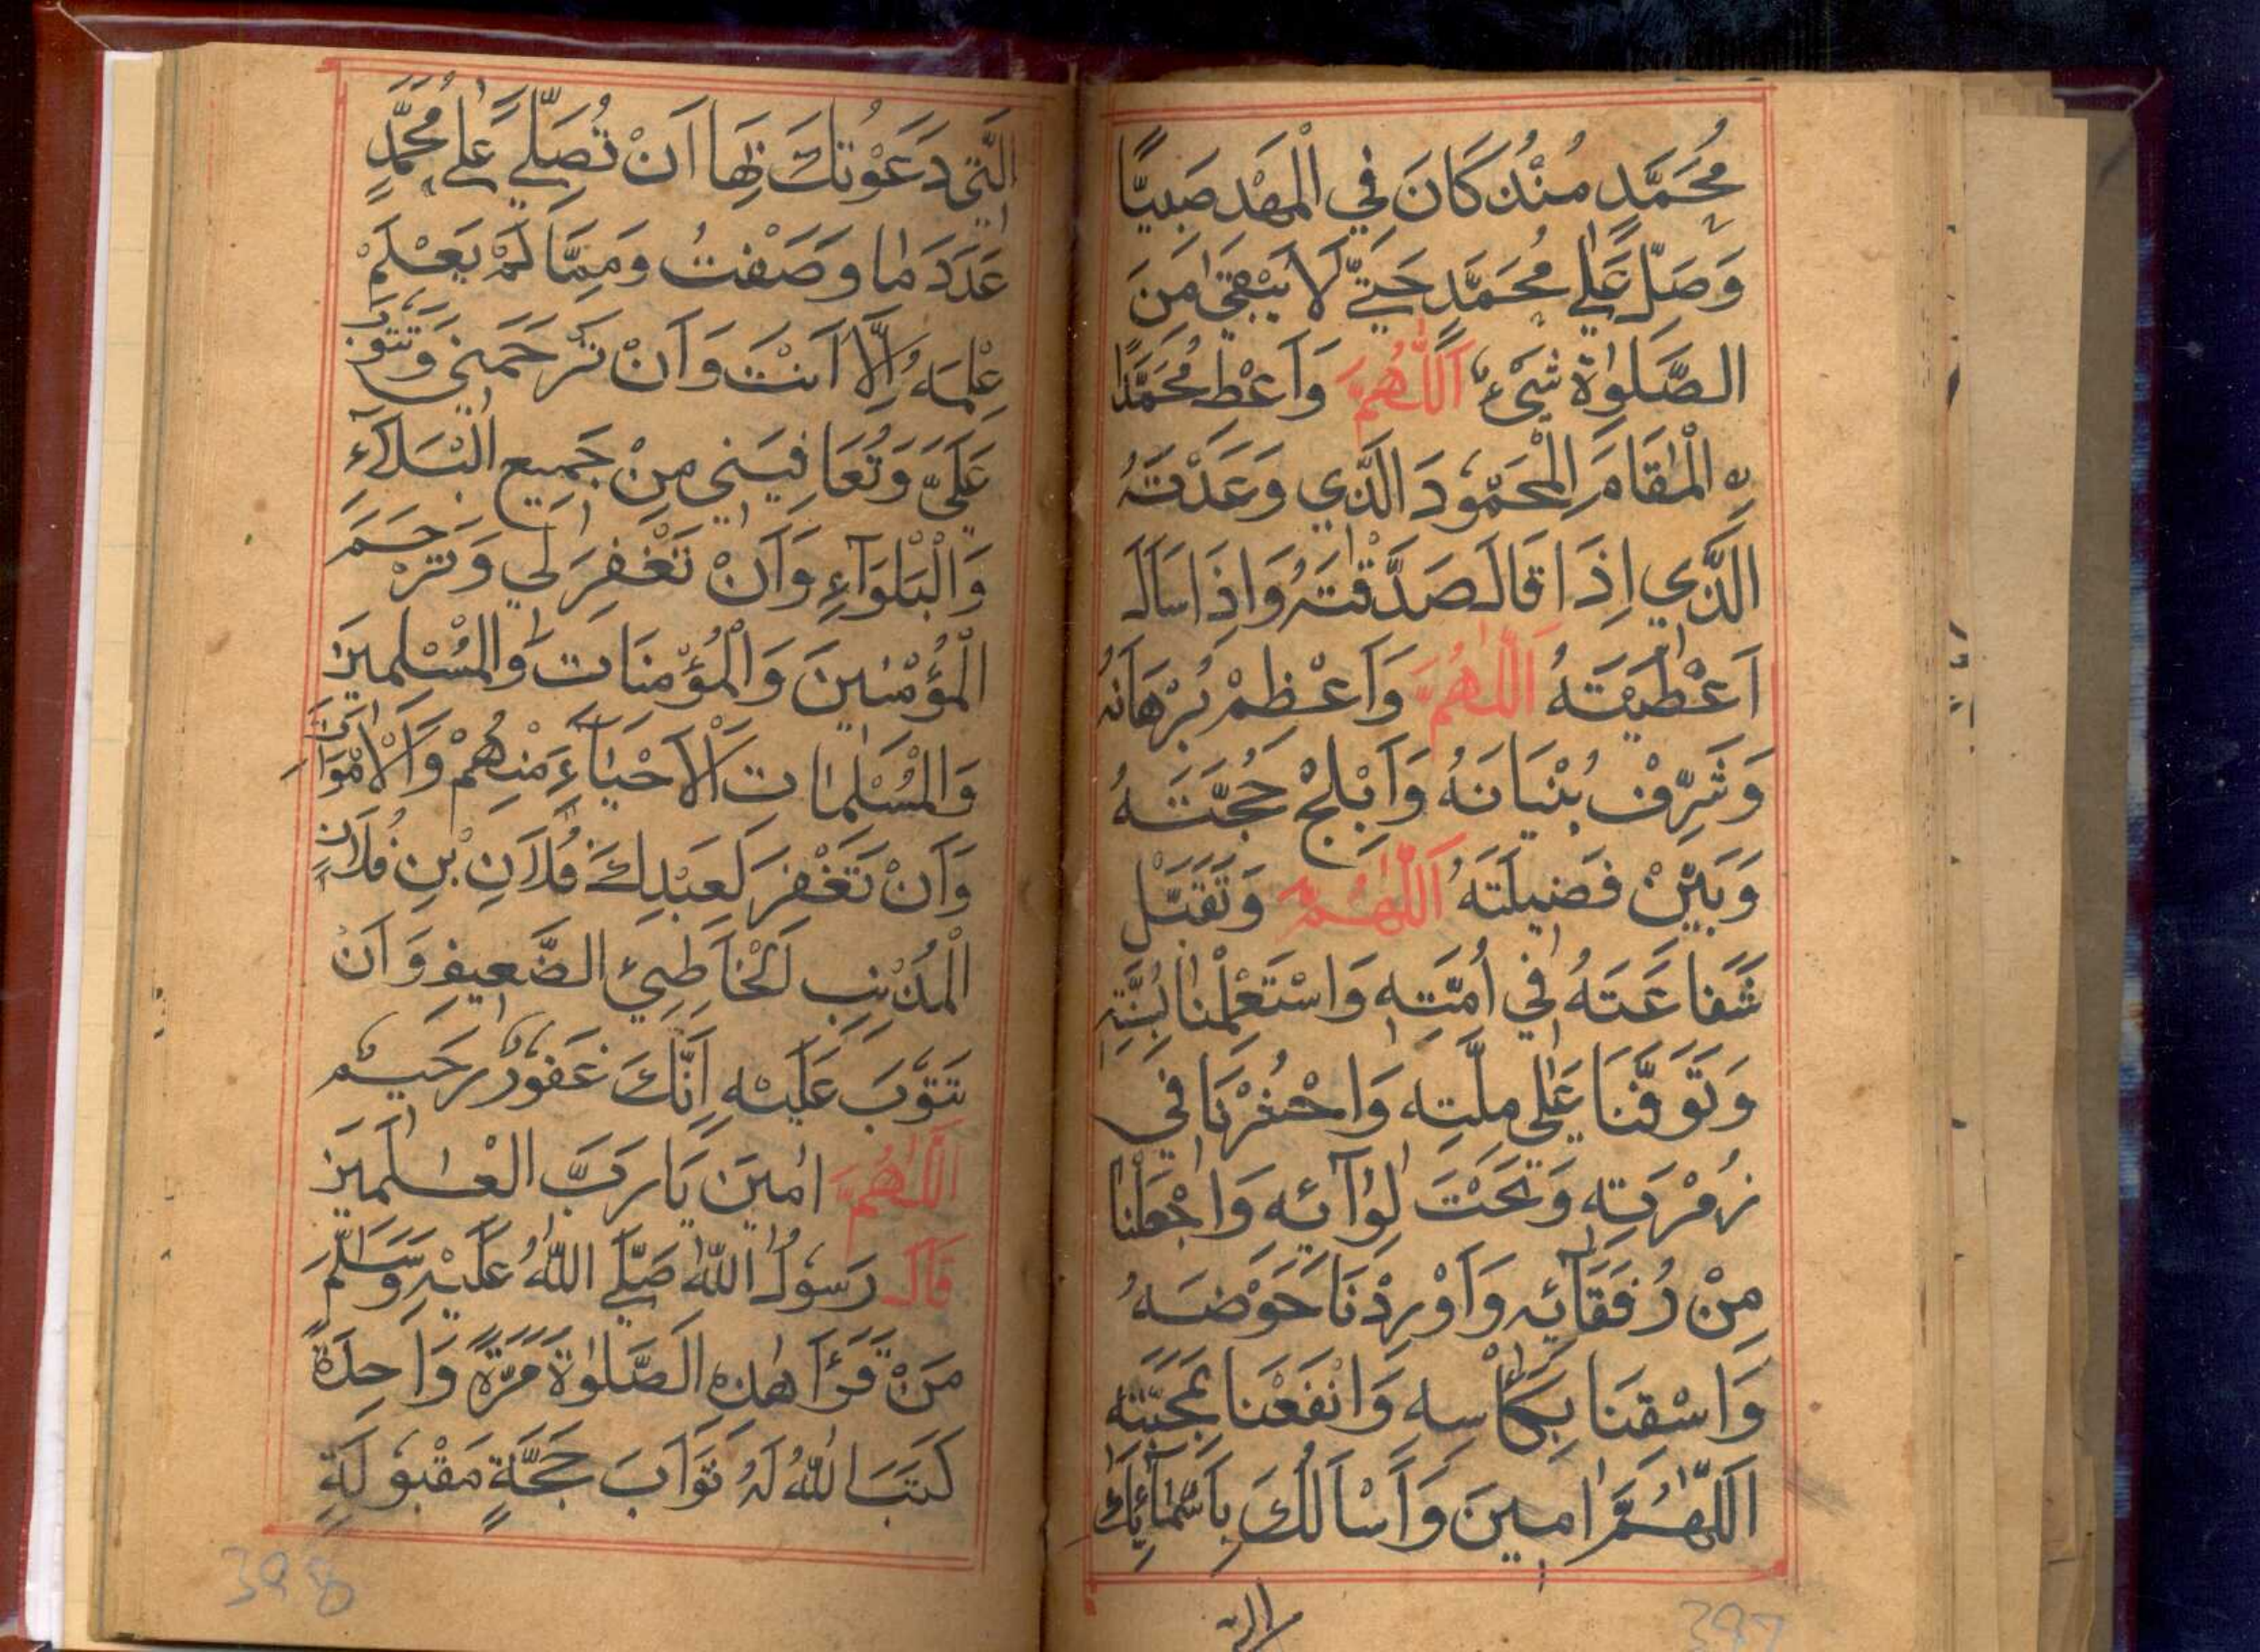 مُحَمَّدٍ مُنْذُ كَانَ فِي الْمَهْدِ صَبِيًّا
وَصَلِّ عَلٰي مُحَمَّدٍ حَتّٰي لَا يَبْقٰي مِنَ
الصَّلٰوةِ شَيْءٌ اَللّٰهُمَّ وَاَعْطِ مُحَمَّدًا
نِ الْمَقَامَ الْمَحْمُوْدَ الَّذِي وَعَدْتَهُ
الَّذِي اِذَا قَالَ صَدَّقْتَهُ وَاِذَا سَاَلَ
اَعْطَيْتَهُ اَللّٰهُمَّ وَاَعْظِمْ بُرْهَانَهُ
وَشَرِّفْ بُنْيَانَهُ وَاَبْلِجْ حُجَّتَهُ
وَبَيِّنْ فَضِيلَتَهُ اَللّٰهُمَّ وَتَقَبَّلْ
شَفَاعَتَهُ فِي اُمَّتِهِ وَاسْتَعْمِلْنَا بِسُنَّتِهِ
وَتَوَفَّنَا عَلٰي مِلَّتِهِ وَاحْشُرْنَا فِي
زُمْرَتِهِ وَتَحْتَ لِوَآئِهِ وَاجْعَلْنَا
مِنْ رُفَقَآئِهِ وَاَوْرِدْنَا حَوْضَهُ
وَاسْقِنَا بِكَاْسِهِ وَانْفَعْنَا بِمَحَبَّتِهِ
اَللّٰهُمَّ اٰمِينَ وَاَسْاَلُكَ بِاَسْمَآئِكَ
397
الَّتِي دَعَوْتُكَ بِهَا اَنْ تُصَلِّيَ عَلٰي مُحَمَّدٍ
عَدَدَ مَا وَصَفْتُ وَمِمَّا لَمْ يَعْلَمْ
عِلْمَهُ اِلَّا اَنْتَ وَاَنْ تَرْحَمَنِي وَتَتُوْبَ
عَلَيَّ وَتُعَافِيَنِي مِنْ جَمِيعِ الْبَلَآءِ
وَالْبَلْوَآءِ وَاَنْ تَغْفِرَ لِي وَتَرْحَمَ
الْمُؤْمِنِينَ وَالْمُؤْمِنَاتِ وَالْمُسْلِمِينَ
وَالْمُسْلِمَاتِ الْاَحْيَآءِ مِنْهُمْ وَالْاَمْوَاتِ
وَاَنْ تَغْفِرَ لِعَبْدِكَ فُلَانِ بْنِ فُلَانٍ
الْمُذْنِبِ الْخَاطِئِ الضَّعِيفِ وَاَنْ
تَتُوْبَ عَلَيْهِ اِنَّكَ غَفُوْرٌ رَحِيمٌ
اَللّٰهُمَّ اٰمِينَ يَارَبَّ الْعٰلَمِينَ
قَالَ رَسُوْلُ اللّٰهِ صَلَّي اللّٰهُ عَلَيْهِ وَسَلَّمَ
مَنْ قَرَاَ هٰذِهِ الصَّلٰوةَ مَرَّةً وَاحِدَةً
كَتَبَ اللّٰهُ لَهُ ثَوَابَ حَجَّةٍ مَقْبُوْلَةٍ
398